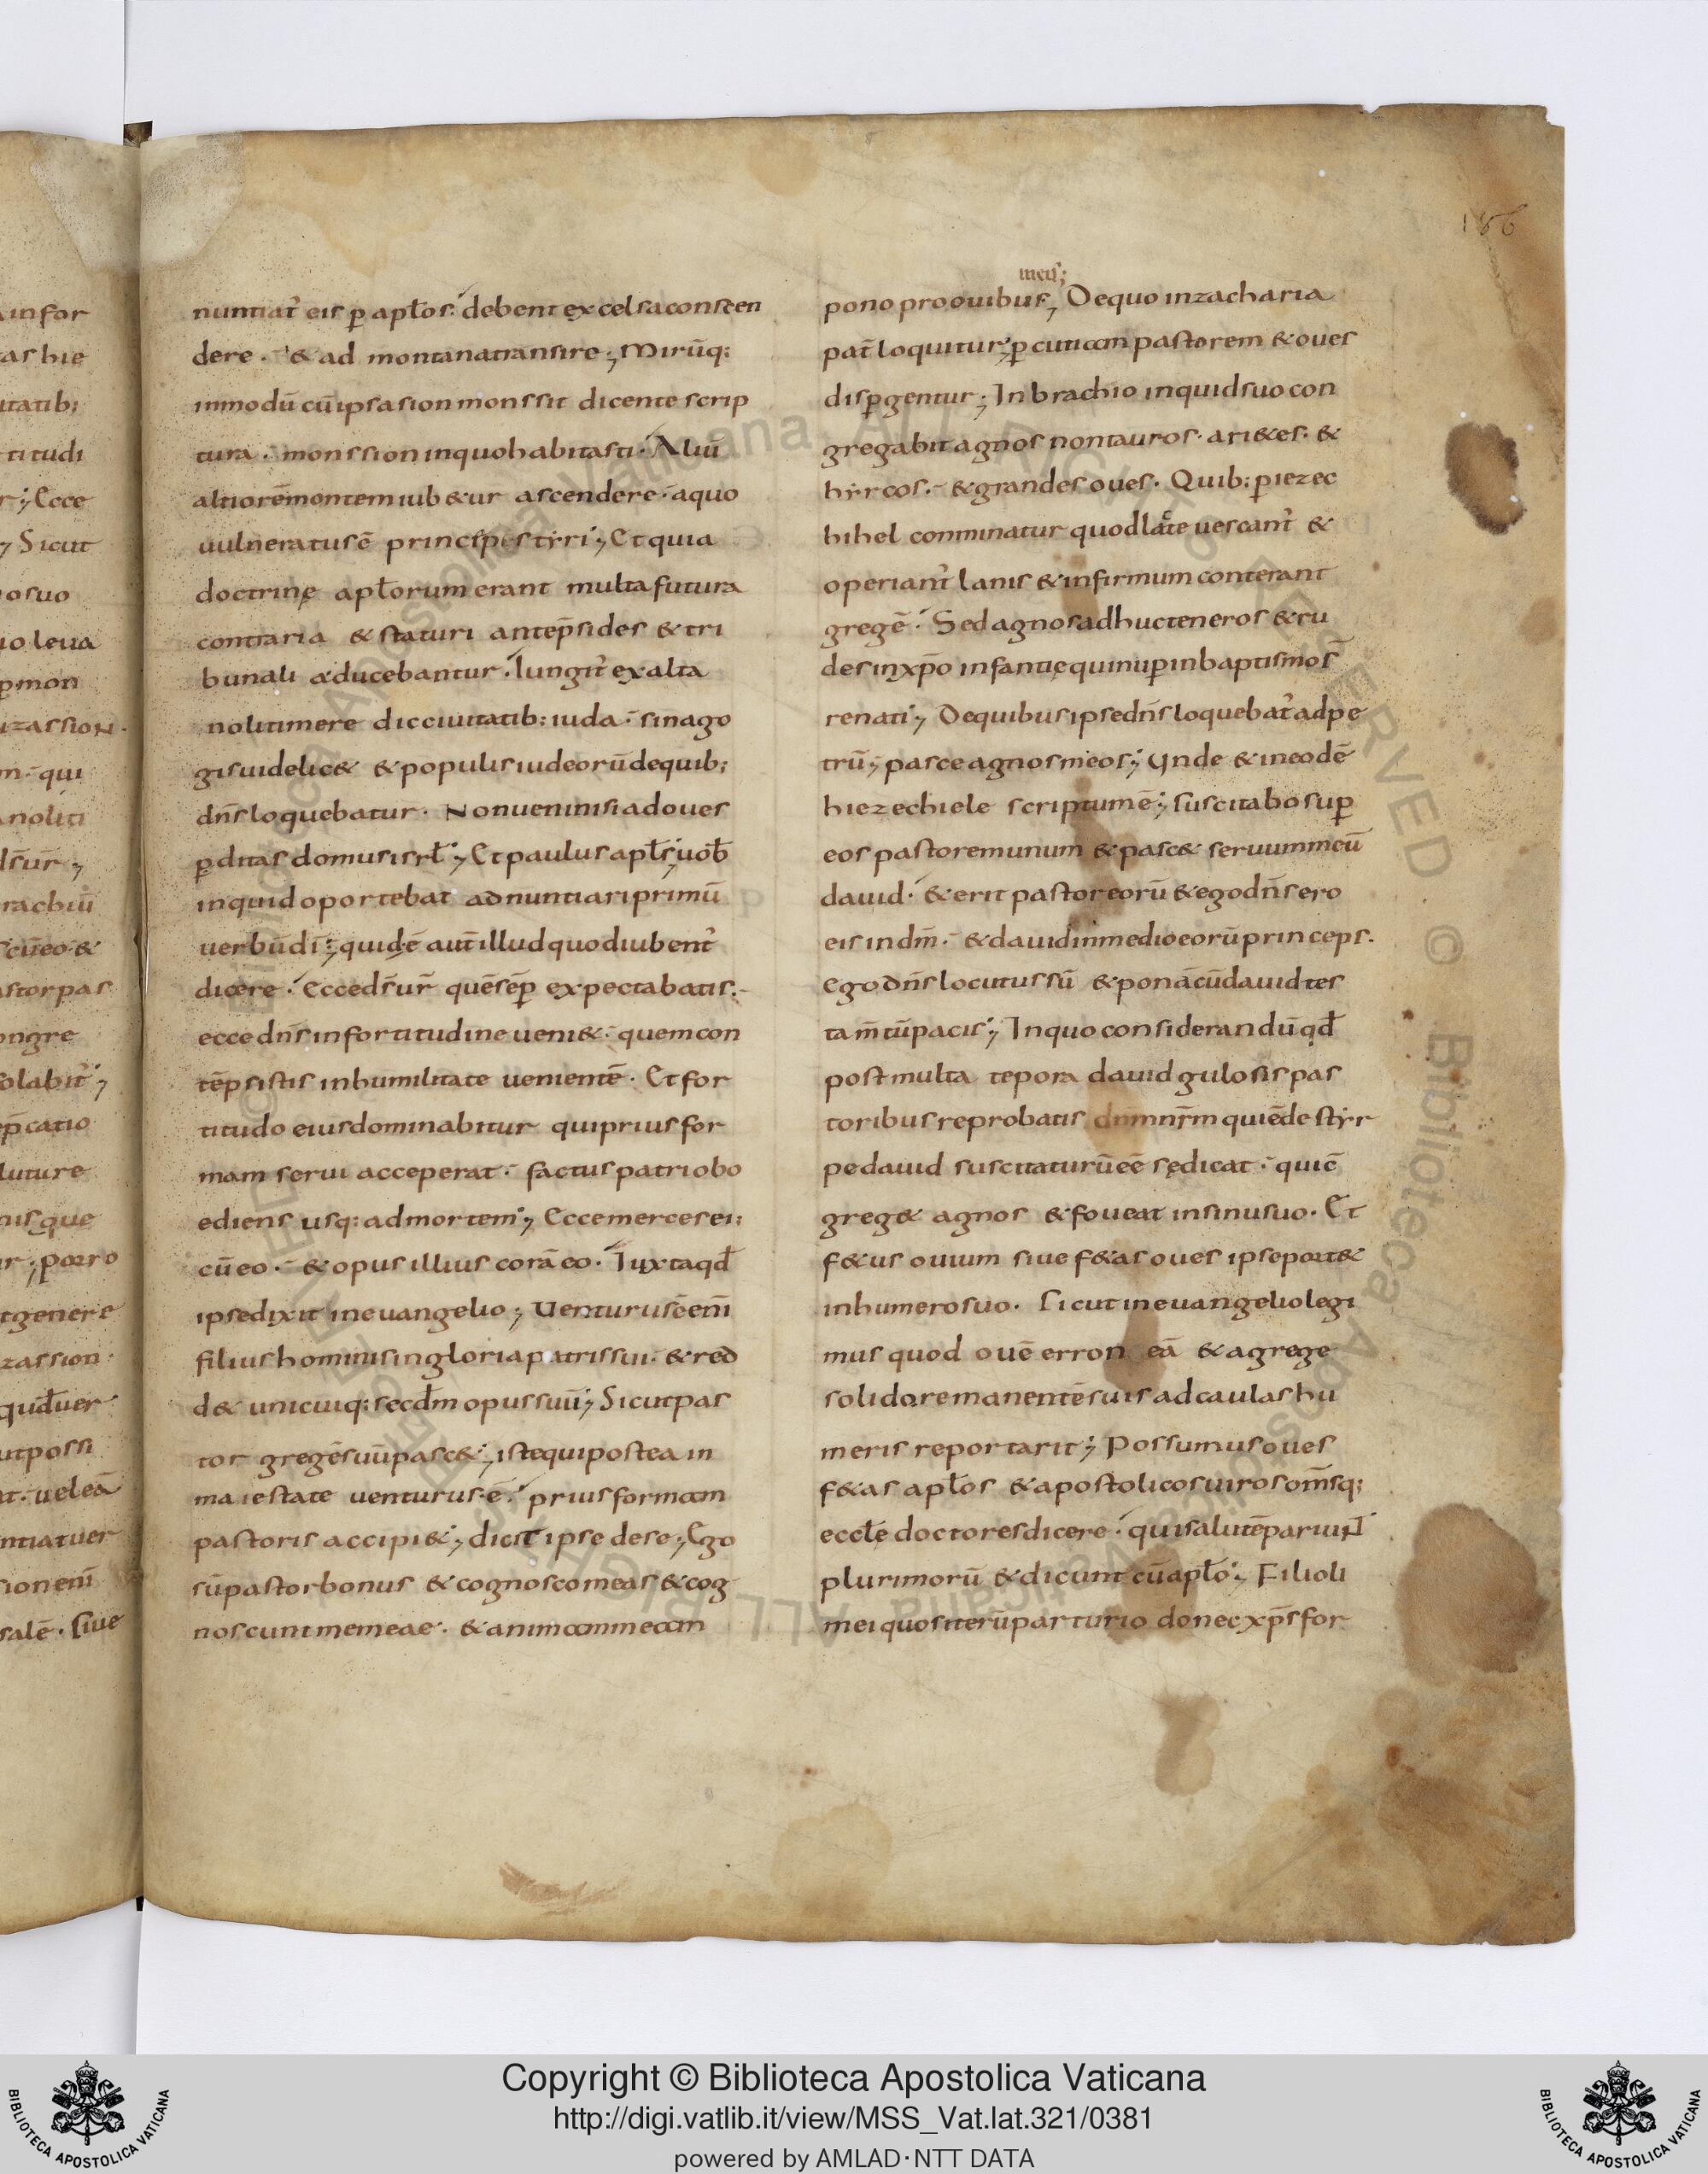 186
nuntiat᷒ eis ꝑ apłos. debent excelsa conscen
dere. & ad montana transire; Mirūq;
inmodū cū ipsa sion mons sit dicente scrip
tura. mons sion in quo habitasti. Aliū
altiorē montem iub&ur ascendere. a quo
uulneratus ē princeps tẏri; Et quia
doctrinę apłorum erant multa futura
contraria & staturi ante p̄sides & tri
bunali aducebantur. Iungit᷒ exalta
noli timere dic ciuitatib; iuda. sinago
gis uidelic& & populis iudeorū de quib;
dn̄s loquebatur. Non ueni nisi ad oues
ꝑditas domus isrł; Et paulus apłs; uob̄
inquid oportebat adnuntiari primū
uerbū dī; quid ē aut̄ illud quod iubent᷒
dicere. Ecce d̄s ur̄ quē sēꝑ expectabatis.
ecce dn̄s in fortitudine ueni&. quem con
tēpsistis in humilitate uenientē. Et for
titudo eius dominabitur qui prius for
mam serui acceperat. factus patri obo
ediens usq; ad mortem; Ecce merces ei;
cū eo. & opus illius corā eo. Iuxta qđ
ipse dixit in euangelio; Uenturus ē enī
filius hominis in gloria patris sui. & red
d& unicuiq; secđm opus suū; Sicut pas
tor gregē suū pasc&; iste qui postea in
maiestate uenturus. ē. prius formam
pastoris accipi&; dicit ipse de se; Ego
sū pastor bonus & cognosco meas & cog
noscunt me meae. & animam meam
meis;
pono pro ouibus; De quo in zacharia
pat̄ loquitur; ꝑcutiam pastorem & oues
disꝑgentur; In brachio inquid suo con
gregabit agnos non tauros. ari&es. &
hẏrcos. & grandes oues. Quib; ꝑ iezec
hihel comminatur quod lacte uescant᷒ &
operiant᷒ lanis & infirmum conterant
gregē. Sed agnos adhuc teneros & ru
des in xp̄o infantię qui nuꝑ in baptismo s̄
renati; De quibus ipse dn̄s loquebat᷒ ad pe
trū; pasce agnos meos; Unde & in eodē
hiezechiele scriptum ē; suscitabo suꝑ
eos pastorem unum & pasc& seruum meū
dauid. & erit pastor eorū & ego dn̄s ero
eis in dm̄. & dauid in medio eorū princeps.
Ego dn̄s locutus sū & ponā cū dauid tes
tam̄tū pacis; In quo considerandū qđ
post multa tepora dauid gulosis pas
toribus reprobatis dn̄m nr̄m qui ē de stẏr
pe dauid suscitaturū eē sę dicat. qui ē
greg& agnos & foueat in sinu suo. Et
f&us ouium siue f&as oues ipse port&
in humero suo. Sicut in euangelio legi
mus quod ouē erron eā & a grege
solido remanentē suis ad caulas hu
meris reportarit; Possumus oues
f&as apłos & apostolicos uiros om̄sq;
eccłę doctores dicere. qui salutē pariunt
plurimorū & dicunt cū apło; Filioli
mei quos iterū parturio donec xp̄s for
Copyright © Biblioteca Apostolica Vaticana
http://digi.vatlib.it/view/MSS_Vat.lat.321/0381
powered by AMLAD·NTT DATA